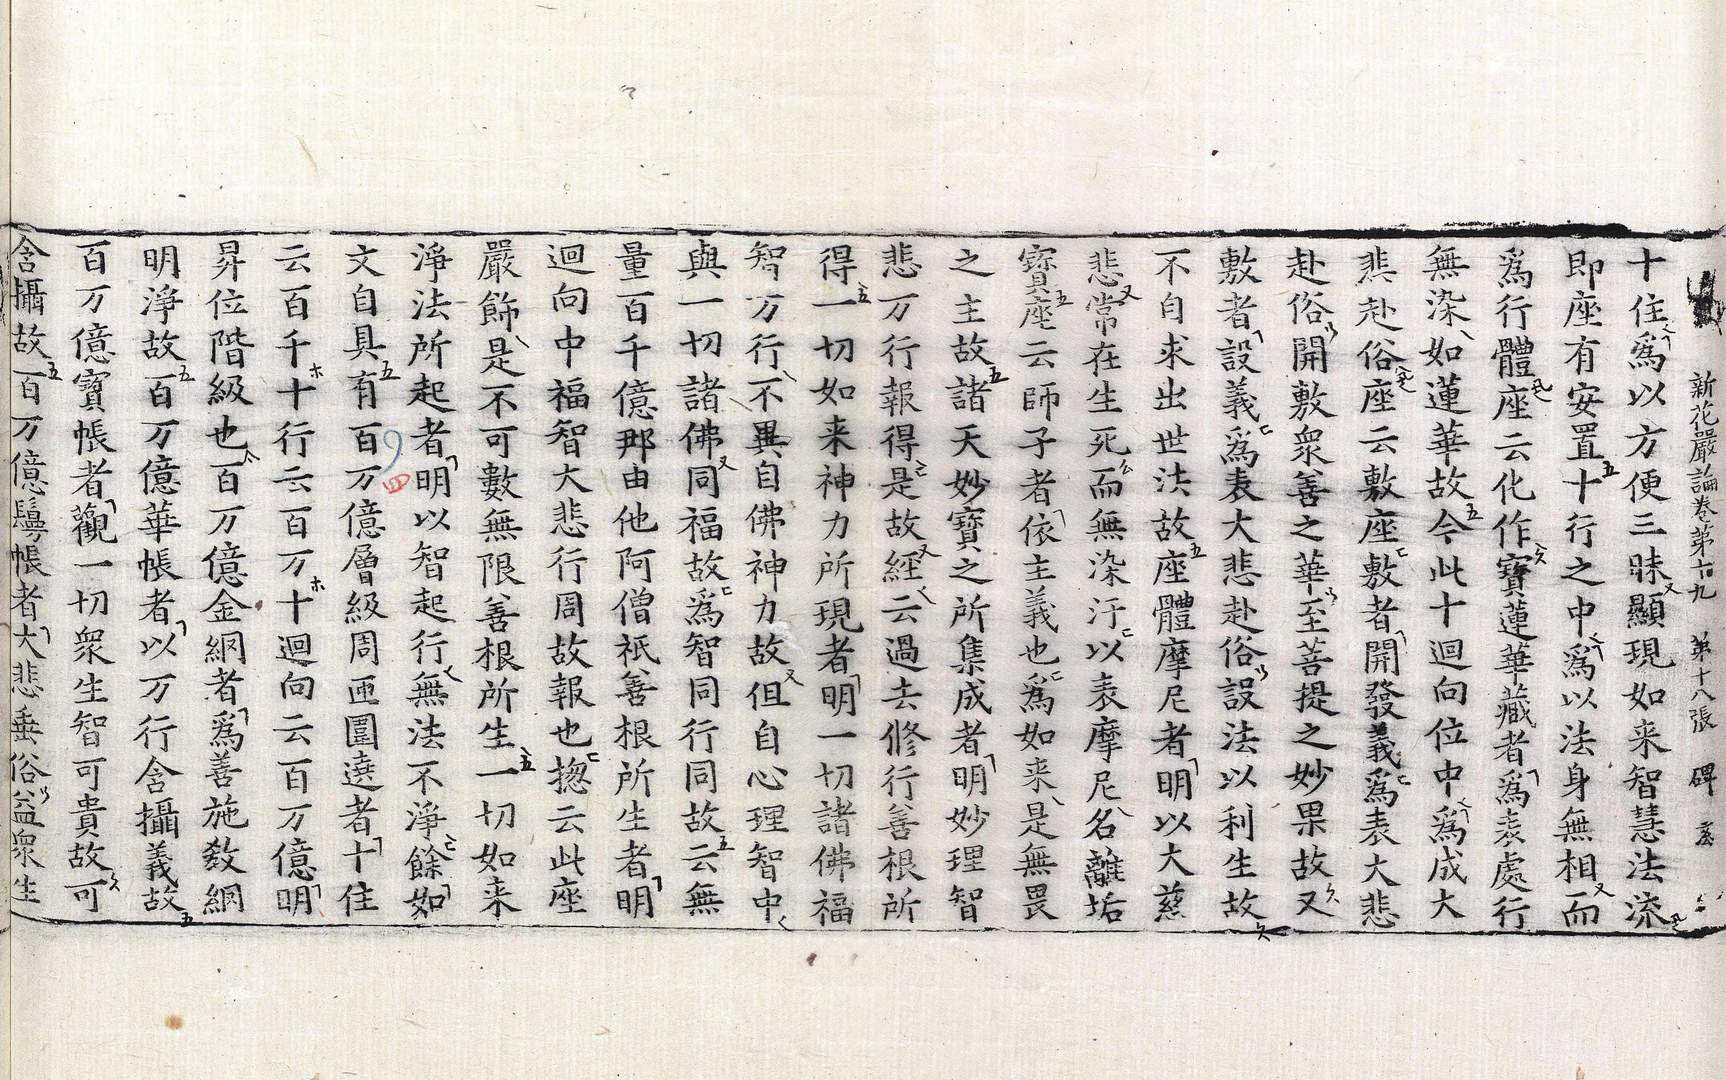 新花嚴論卷第六九　第十八張　碑
十住爲以方便三昧顯現如来智慧法流
即座有安置十行之中爲以法身無相而
爲行體座云化作寶蓮華藏者爲表處行
無染如蓮華故今此十迴向位中爲成大
悲赴俗座云敷座敷者開發義爲表大悲
赴俗開敷衆善之華至菩提之妙果故又
敷者設義爲表大悲赴俗設法以利生故
不自求出世法故座體摩尼者明以大慈
悲常在生死而無染汙以表摩尼名離垢
寶座云師子者依主義也爲如来是無畏
之主故諸天妙寶之所集成者明妙理智
悲万行報得是故經云過去修行善根所
得一切如来神力所現者明一切諸佛福
智万行不異自佛神力故但自心理智中
與一切諸佛同福故爲智同行同故云無
量百千億那由他阿僧祇善根所生者明
迴向中福智大悲行周故報也揔云此座
嚴飾是不可數無限善根所生一切如来
淨法所起者明以智起行無法不淨餘如
文自具有百万億層級周匝圍遶者十住
云百千十行云百万十迴向云百万億明
昇位階級也百万億金網者爲善施敎網
明淨故百万億華帳者以万行含攝義故
百万億寶帳者觀一切衆生智可貴故可
含攝故百万億鬘帳者大悲垂俗益衆生